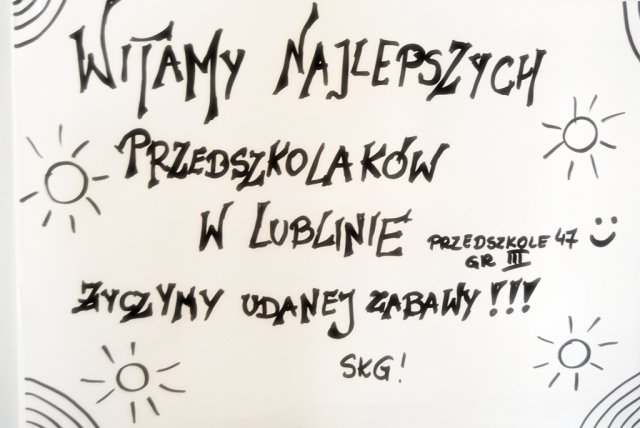 WITAMY NAJLEPSZYCH
PRZEDSZKOLAKÓW
W LUBLINIE
PRZEDSZKOLE 47
GR III
ŻYCZYMY UDANEJ ZABAWY!!!
SKG!